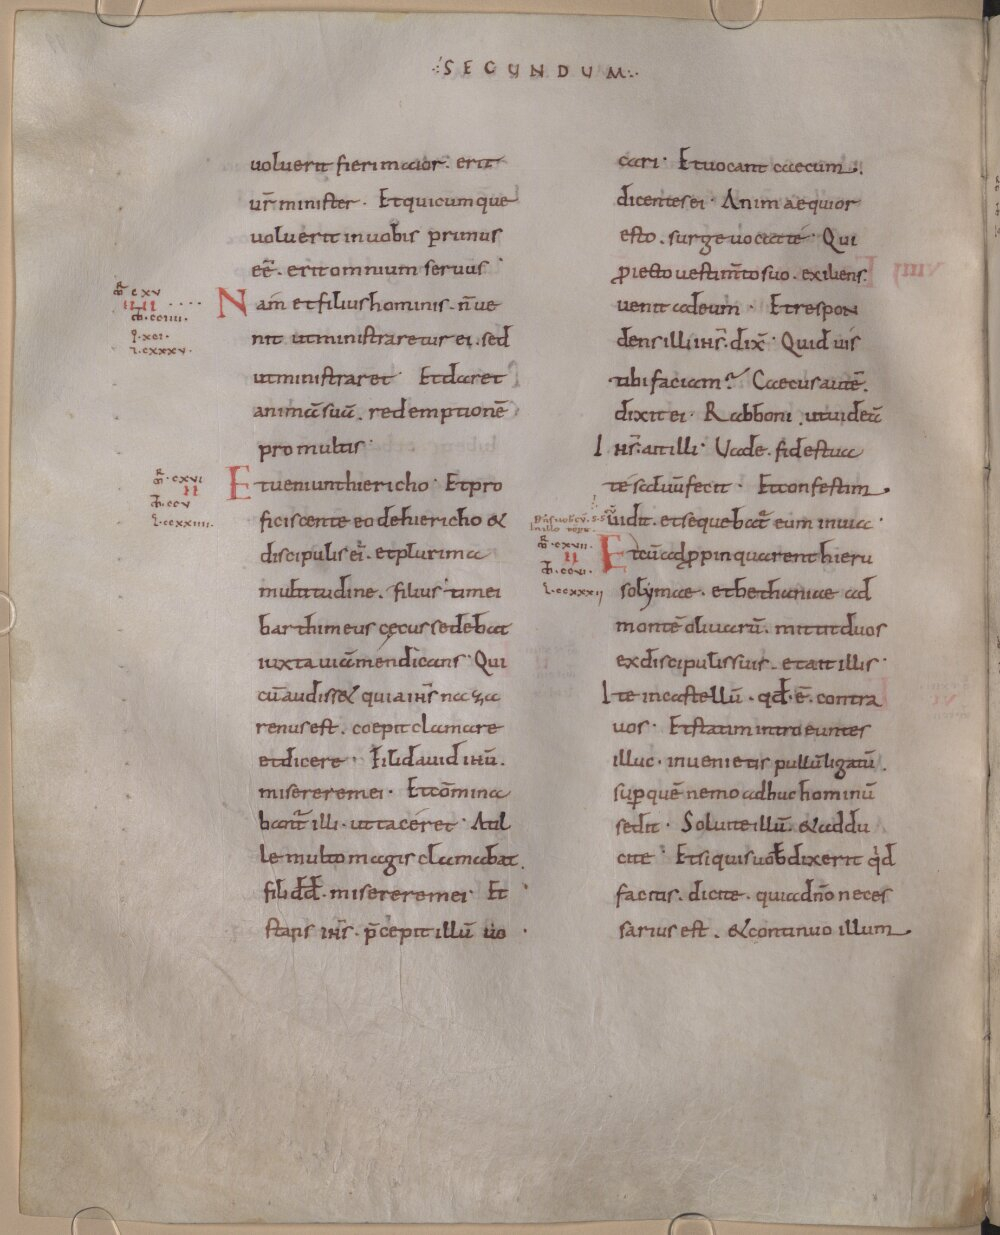 SECUNDUM
voluerit fieri maior. erit
ur̄ minister. Et quicumque
voluerit in vobis primus
eē. erit omnium servus
mr̄ cxv
ıı ıı
ccıııı
l. xci.
ı. cxxxv.
Nam et filius hominis. n̄ ve
nit ut ministraretur ei. sed
ut ministraret Et daret
animā suā. redemptionē
pro multis
mr̄. cxvı
ıı
ccv
l. ccxxıııı.
Et veniunt hiericho. Et pro
ficiscente eo de hiericho &
discipulis ei'. et plurima
multitudine. filius timei
barthimeus cęcus sedebat
iuxta viā mendicans. Qui
cū audiss& quia ihs̄ naza
renus est. coepit clamare
et dicere. Fili david ihū.
miserere mei. Et cōmina
bant̄ illi. ut taceret. At il
le multo magis clamabat.
fili dd̄. miserere mei. Et
stans ihs̄. p̄cepit illū vo
cari. Et vocant caecum.
dicentes ei. Animaequior
esto. surge vocat te. Qui
ꝓiecto vestim̄to suo. exiliens.
venit ad eum. Et respon
dens illi ihs̄. dix̄. Quid vis
tibi faciam? Caecus autē.
dixit ei. Rabboni. ut videā
Ihs̄. ait illi. Vade. fides tua
te salvū fecit. Et confestim
vidit. et sequebat̄ eum in via.
mr̄. cxvıı.
ıı
ccvı.
l. ccxxxıı
Et cū adꝓpinquarent hieru
solymae. et bethaniae ad
montē olivarū. mittit duos
ex discipulis suis. et ait illis.
Ite in castellū. qd̄. ē. contra
vos. Et statim introeuntes
illuc. invenietis pullū ligatū.
sup quē nemo adhuc hominū
sedit. Solvite illū. & addu
cite. Et si quis vob̄ dixerit qid
facitis. dicite. quia dn̄o neces
sarius est. & continuo illum